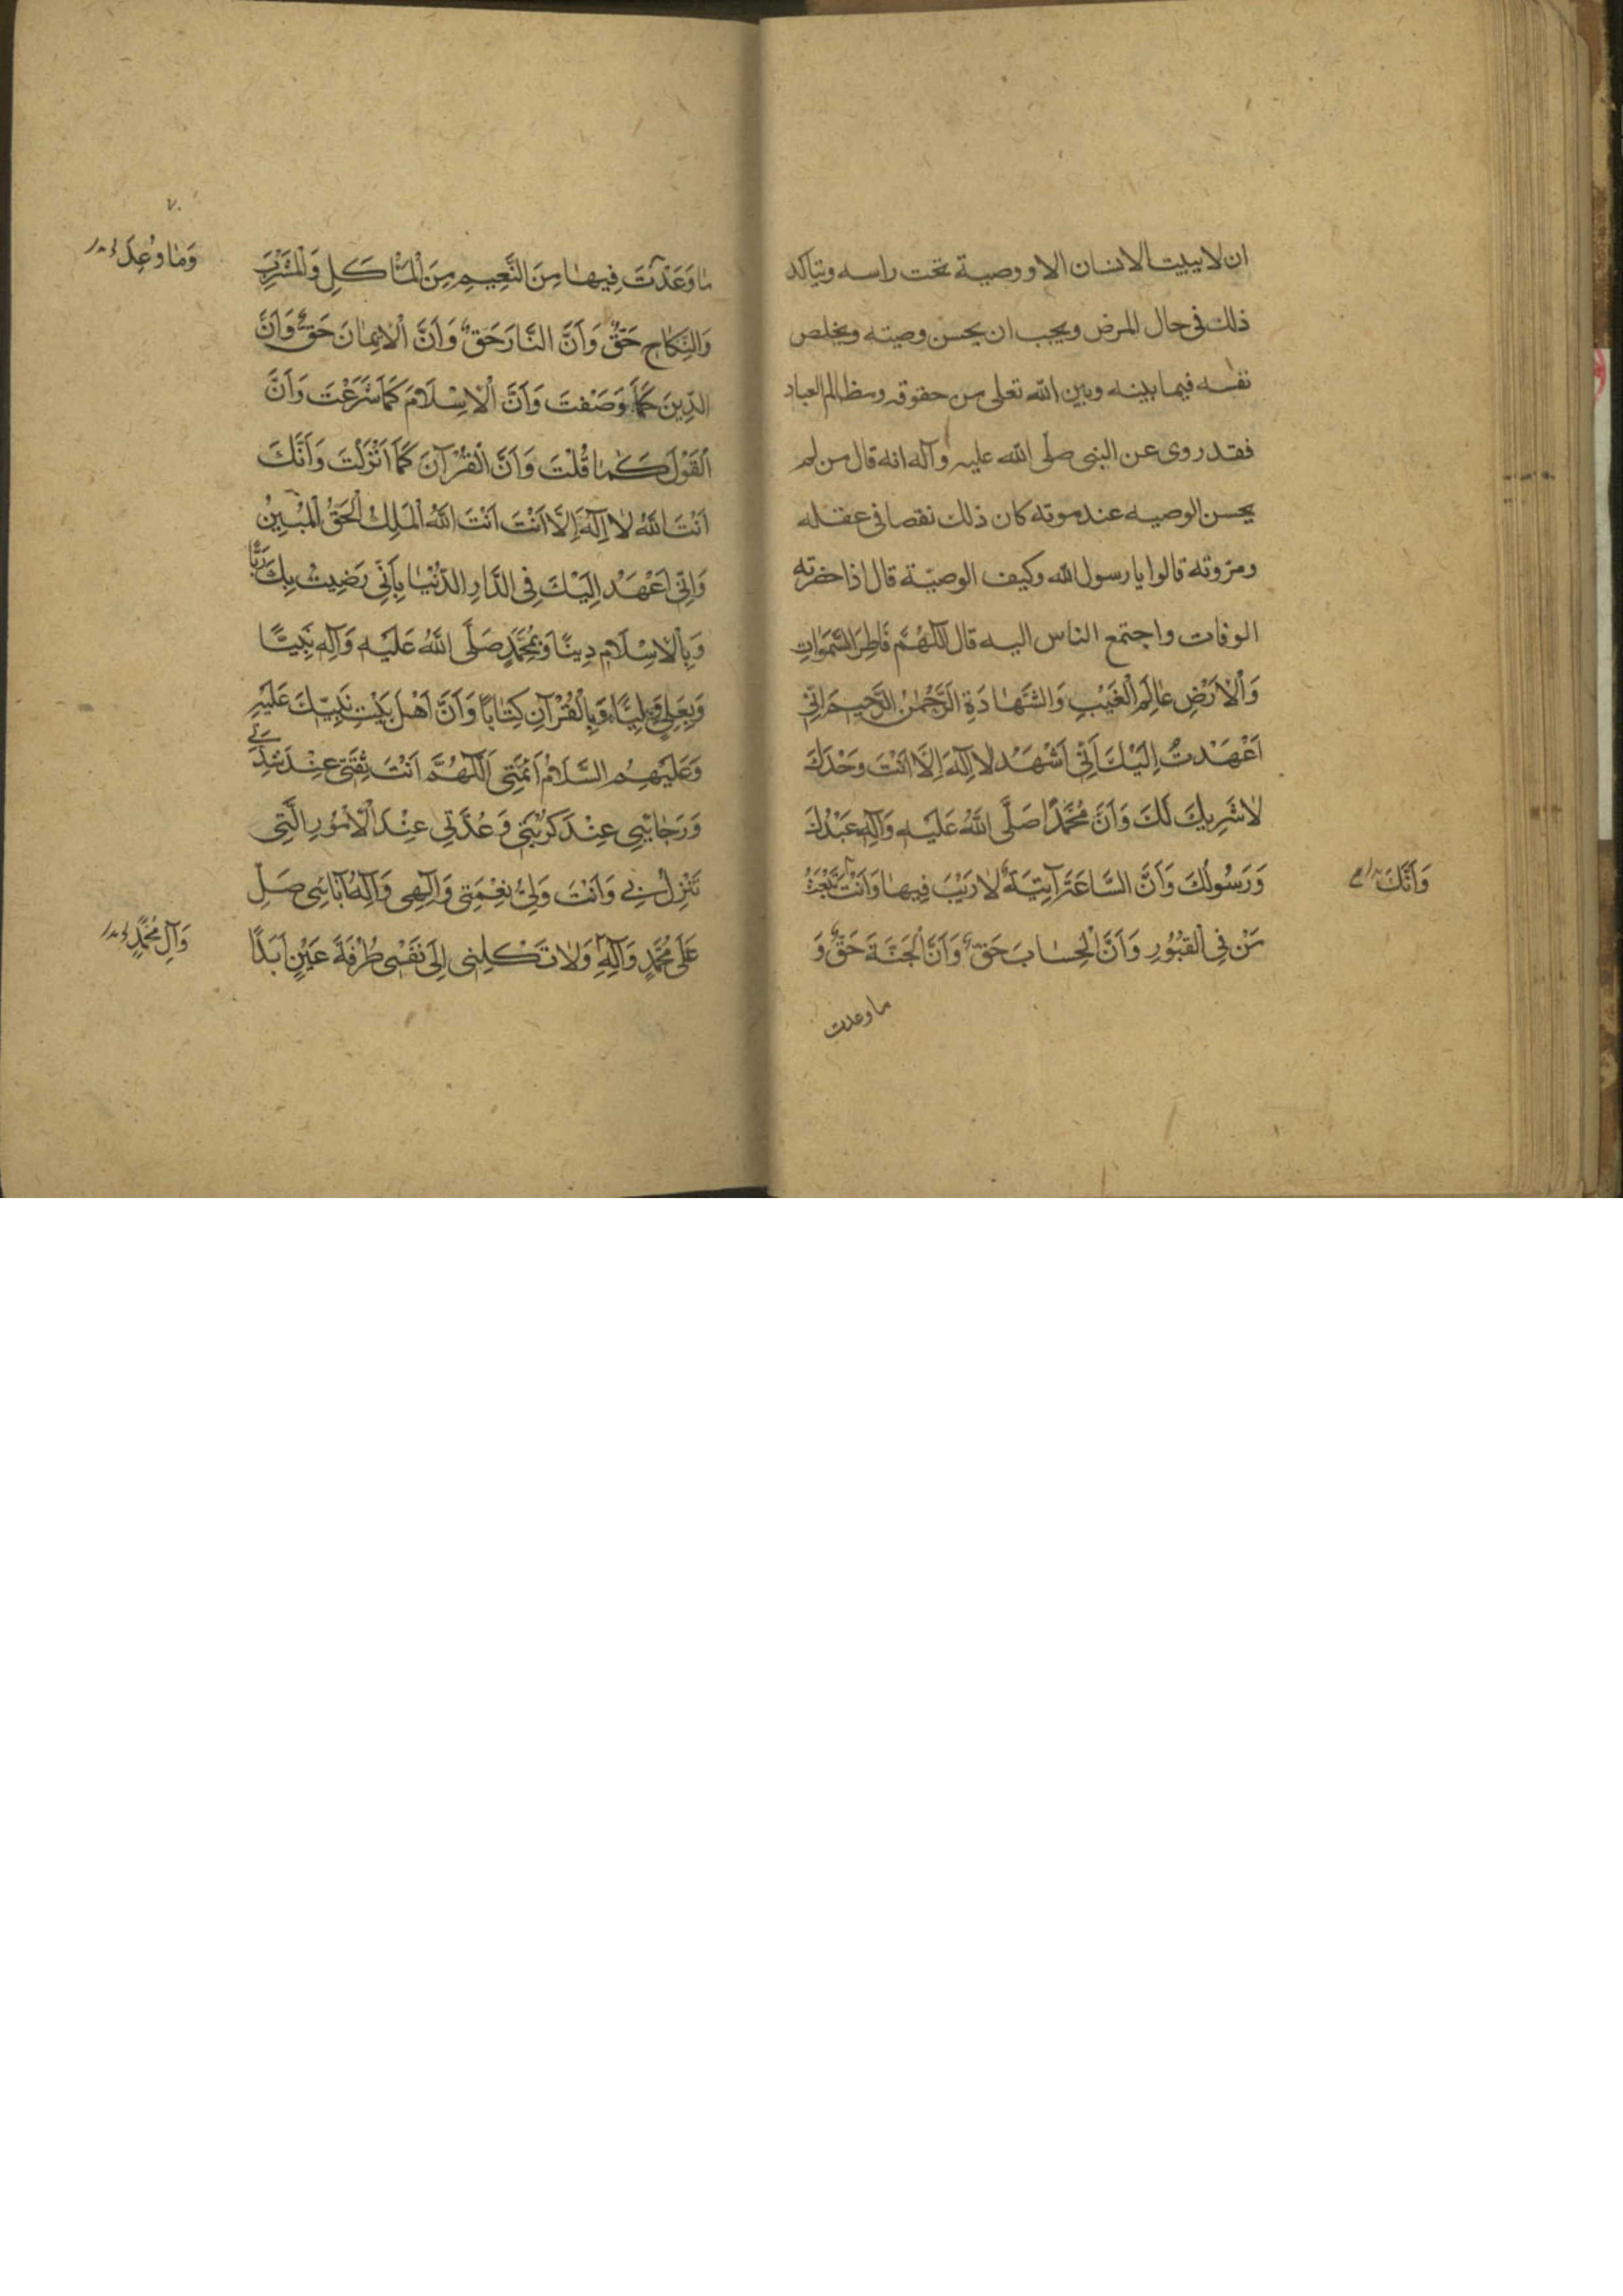 ان لا يبيت الانسان الا و وصية تحت راسه ويتاكد
ذلك فى حال المرض ويجب ان يحسن وصيته ويخلص
نفسه فيما بينه وبين الله تعلى من حقوقه ومظالم العباد
فقد روى عن النبى صلّى الله عليه وآله انه قال من لم
يحسن الوصيه عند موته كان ذلك نقصا فى عقله
ومروّته قالوا يا رسول الله وكيف الوصيّة قال اذا حضرته
الوفات واجتمع الناس اليه قال اَللّٰهُمَّ فَاطِرَ السَّمَوَاتِ
وَالْاَرْضِ عَالِمَ الْغَيْبِ وَالشَّهَادَةِ الرَّحْمٰنُ الرَّحِيمَ اِنِّى
اَعْهَدتُ اِلَيْكَ اَنِّى اَشْهَدُ لَا اِلٰهَ اِلَّا اَنْتَ وَحْدَكَ
لَا شَرِيكَ لَكَ وَاَنَّ مُحَمَّدًا صَلَّى اللّٰهُ عَلَيْهِ وَآلِهِ عَبْدُكَ
وَرَسُولُكَ وَاَنَّ السَّاعَةَ آتِيَةٌ لَا رَيْبَ فِيهَا وَاَنْتَ تَبْعَثُ
وَاَنَّكَ
مَنْ فِى الْقُبُورِ وَاَنَّ الْحِسَابَ حَقٌّ وَاَنَّ الْجَنَّةَ حَقٌّ وَ
ما وعدت
٧٠
مَا وَعَدْتَ فِيهَا مِنَ النَّعِيمِ مِنَ الْمَأْكَلِ وَالْمَشْرَبِ
وَمَا وُعِدَ
وَالنِّكَاحِ حَقٌّ وَاَنَّ النَّارَ حَقٌّ وَاَنَّ الْاِيمَانَ حَقٌّ وَاَنَّ
الدِّينَ كَمَا وَصَفْتَ وَاَنَّ الْاِسْلَامَ كَمَا شَرَعْتَ وَاَنَّ
الْقَوْلَ كَمَا قُلْتَ وَاَنَّ الْقُرْآنَ كَمَا اَنْزَلْتَ وَاَنَّكَ
اَنْتَ اللّٰهُ لَا اِلٰهَ اِلَّا اَنْتَ اَنْتَ اللّٰهُ الْمَلِكُ الْحَقُّ الْمُبِينُ
وَاِنِّى اَعْهَدُ اِلَيْكَ فِى الدَّارِ الدُّنْيَا بِاَنِّى رَضِيتُ بِكَ رَبًّا
وَبِالْاِسْلَامِ دِينًا وَبِمُحَمَّدٍ صَلَّى اللّٰهُ عَلَيْهِ وَآلِهِ نَبِيًّا
وَبِعَلِىٍّ وَلِيًّا وَبِالْقُرْآنِ كِتَابًا وَاَنَّ اَهْلَ بَيْتِ نَبِيِّكَ عَلَيْهِ
وَعَلَيْهِمُ السَّلَامُ اَئِمَّتِى اَللّٰهُمَّ اَنْتَ ثِقَتِى عِنْدَ شِدَّتِى
وَرَجَائِى عِنْدَ كُرْبَتِى وَعُدَّتِى عِنْدَ الْاُمُورِ الَّتِى
تَنْزِلُ بِى وَاَنْتَ وَلِىُّ نِعْمَتِى وَاِلٰهِى وَاِلٰهُ آبَائِى صَلِّ
عَلَى مُحَمَّدٍ وَآلِهِ وَلَا تَكِلْنِى اِلَى نَفْسِى طَرْفَةَ عَيْنٍ اَبَدًا
وَآلِ مُحَمَّدٍ